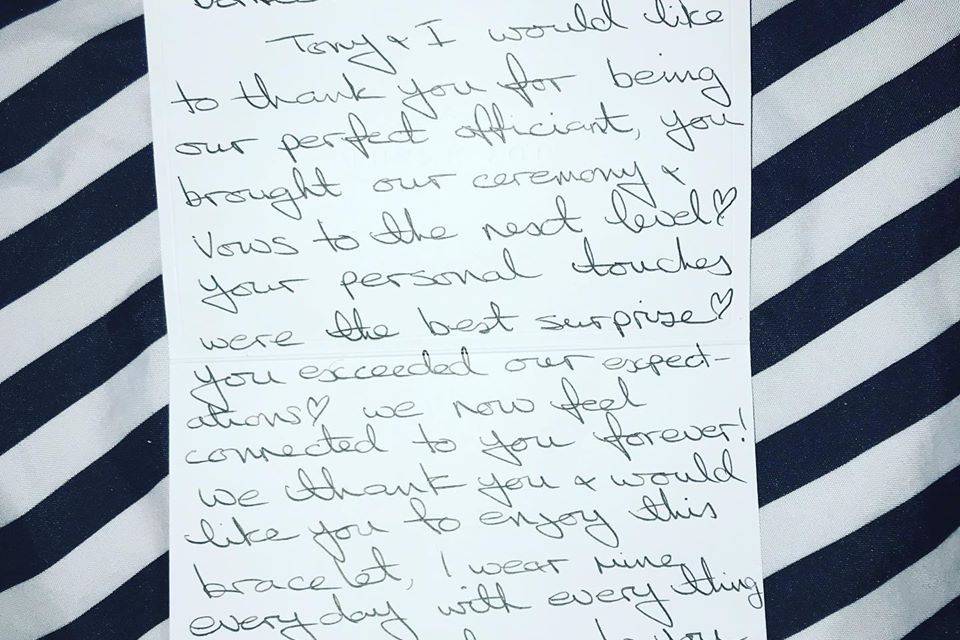 Tony & I would like
to thank you for being
our perfect officiant, you
brought our ceremony &
vows to the next level♡
your personal touches
were the best surprise♡
you exceeded our expect-
ations♡ we now feel
connected to you forever!
we thank you & would
like you to enjoy this
bracelet, I wear mine
everyday with every thing